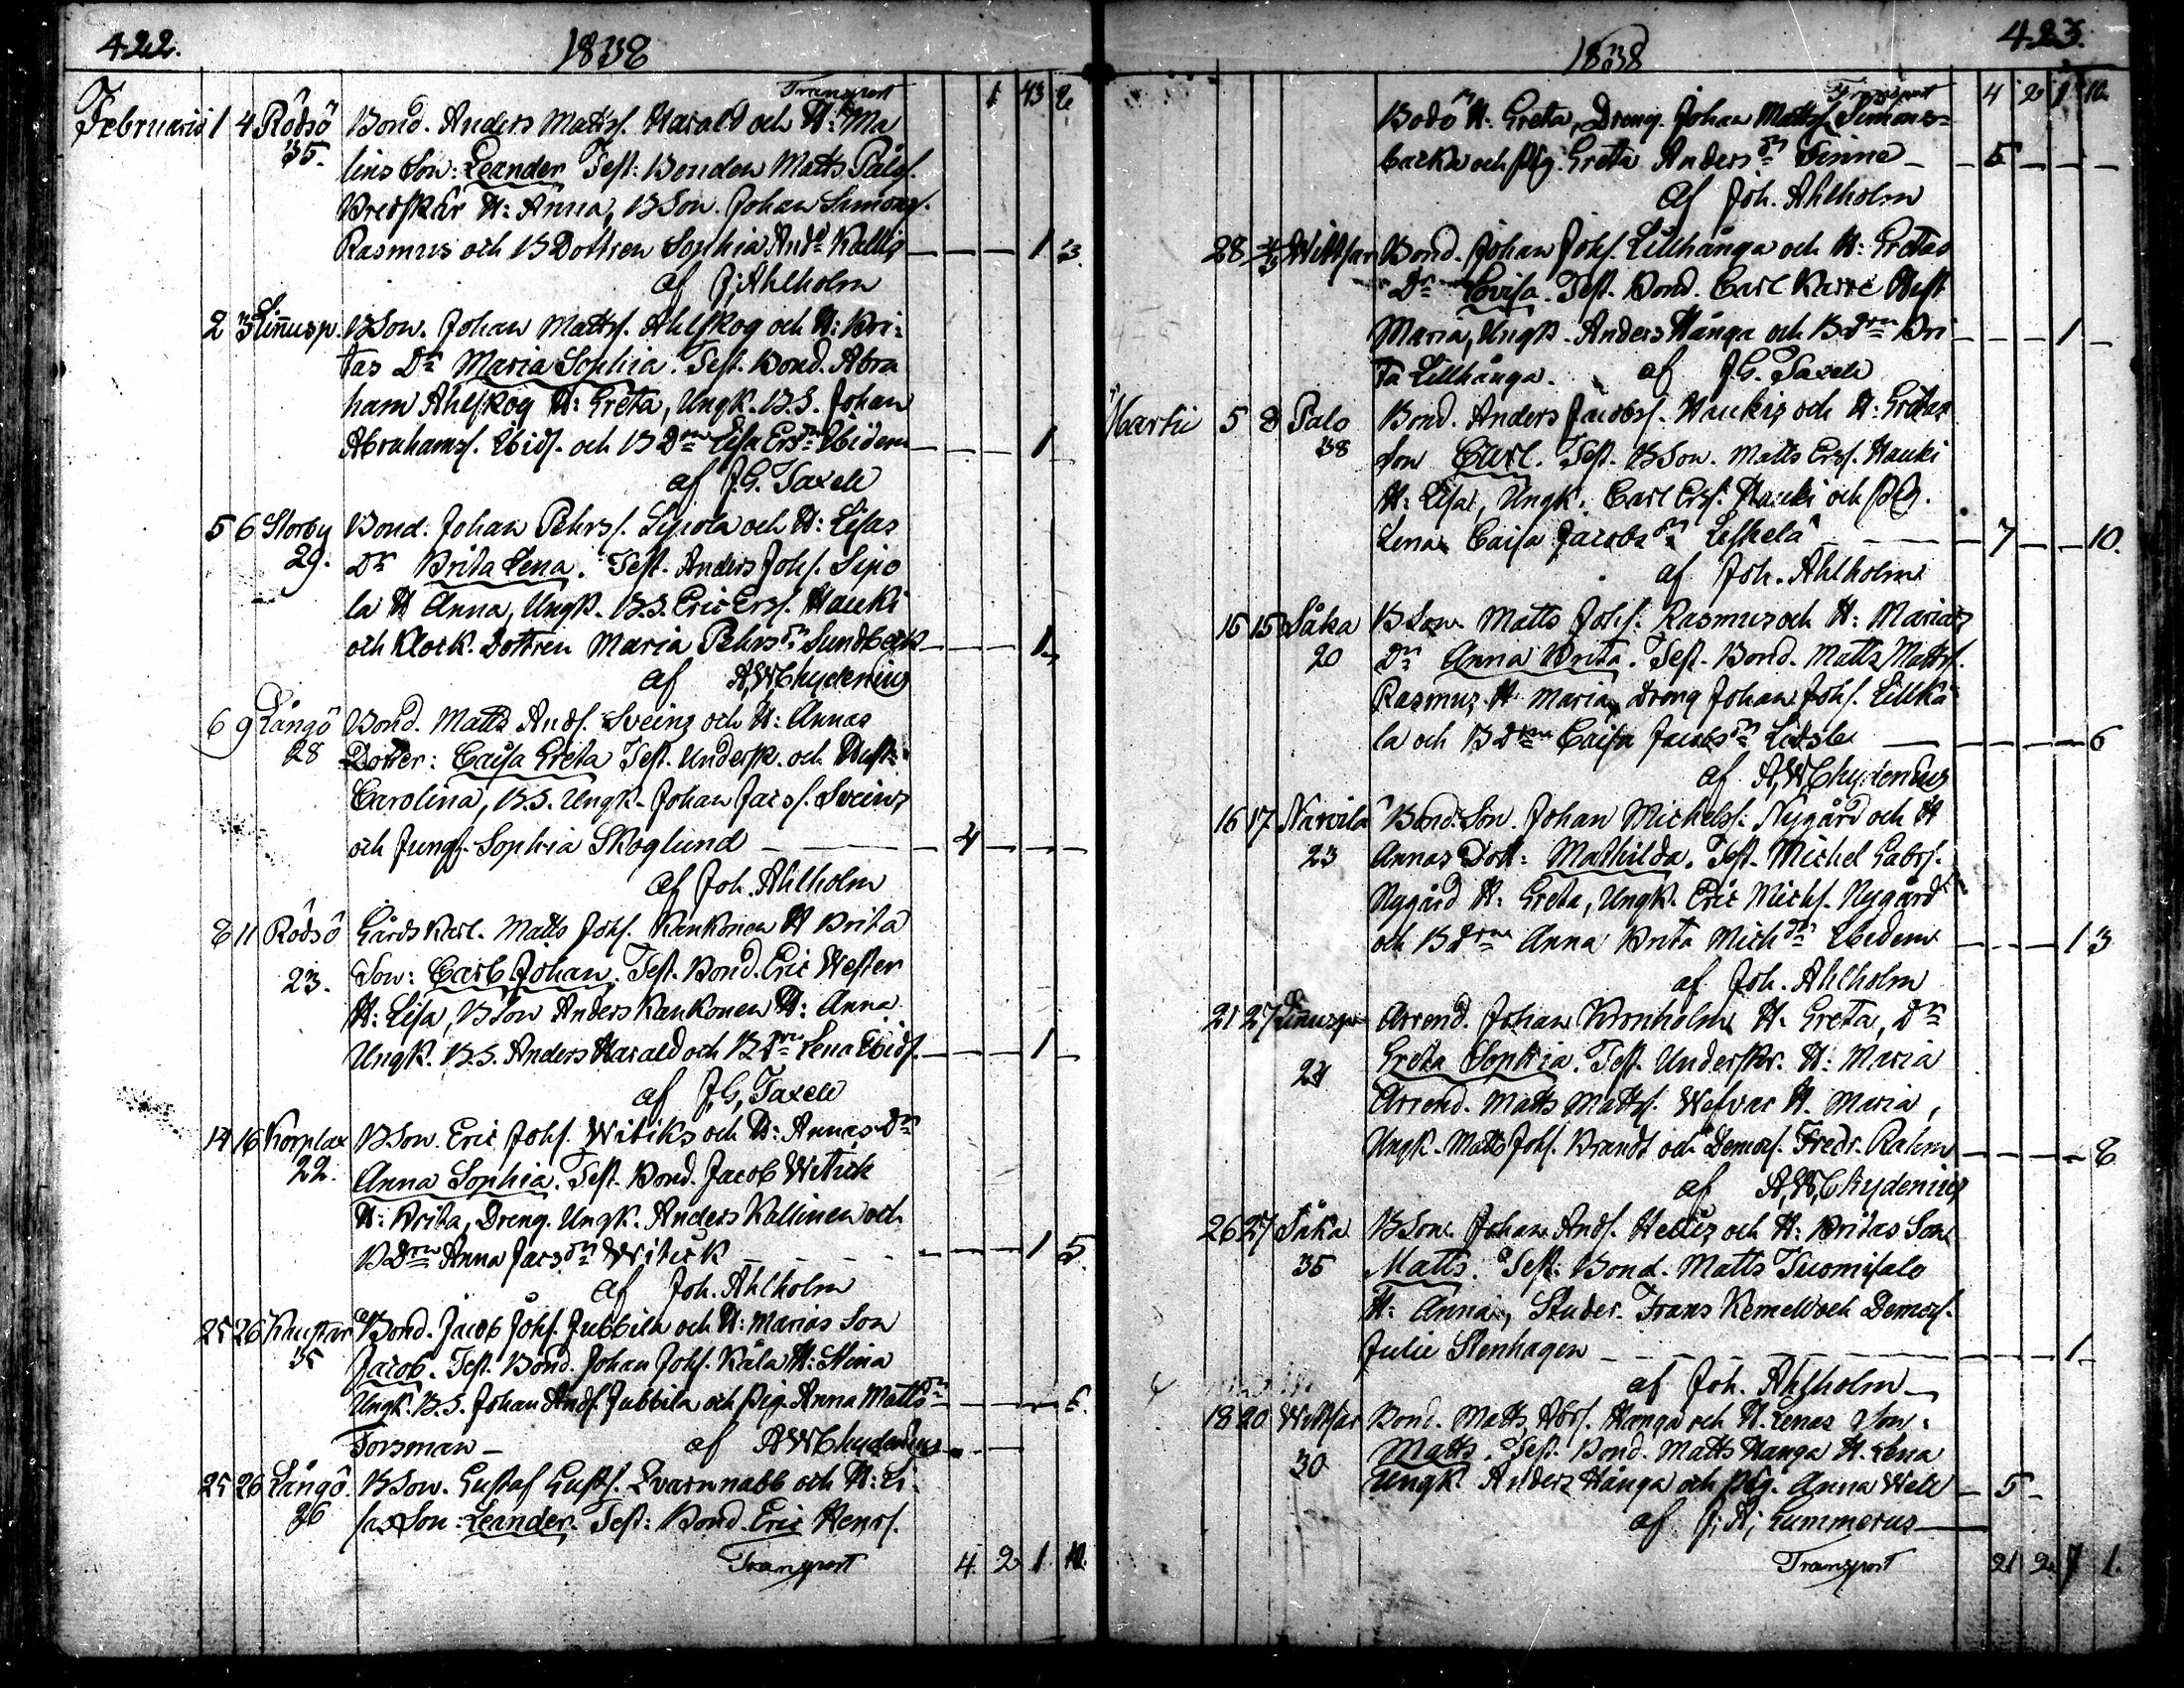 422.
1838
Transport 1 43 2
Februarii 1 4 Rödsö Bond. Anders Mattss. Harald och H: Ma
35. lins Son: Leander Test: Bonden Matts Pålss.
Bredskär H: Anna, BSon. Johan Simonss.
Rasmus och B Dottren Sophia And:dr Kallis — — — 1 3.
af J; Ahlholm
2 3 Linnusp. BSon. Johan Mattss. Ahlskog och H: Bri-
tas Dr Maria Sophia. Test. Bond. Abra
ham Ahlskog H: Greta, Ungk. B.S. Johan
Abrahamss. Ibid. och B Drn Lisa Ersdr Ibidem — — — 1 —
af J.G. Taxell
5 6 Storby Bond. Johan Pehrss. Sipola och H: Lisas
29. Dr Brita Lena. Test. Anders Johss. Sipo
la H Anna, Ungk. B.S. Eric Erss. Hauki
och Klock. Dottren Maria Pehrsdr Sundbäck — — — 1 —
af A,W,Chydenius
6 9 Långö Bond. Matts Andss. Sveins och H: Annas
28 Dotter: Caisa Greta Test. Undersk. och Hust:
Carolina, B.S. Ungk. Johan Jacss. Sveins
och Jungf. Sophia Skoglund — — 4 — — —
af Joh. Ahlholm
8 11 Rödsö Gårds Karl. Matts Johss. Kankonen H Brita
23. Son: Carl Johan. Test. Bond. Eric Wester
H: Lisa, BSon Anders Kankonen H: Anna
Ungk. B.S. Anders Harald och B Drn Lena Ibid. — — — 1 —
af J,G, Taxell
14 16 Korplax BSon. Eric Johss. Witiks och H: Annas Dr
22. Anna Sophia. Test. Bond. Jacob Witick
H: Brita, Dreng. Ungk. Anders Kallinen och
B Drn Anna Jacsdr Witick — — — 1 5.
af Joh. Ahlholm
25 26 Kaustar Bond. Jacob Johss. Jubbila och H: Marias Son
35 Jacob. Test. Bond. Johan Johss. Kåla H: Stina
Ungk. B.S. Johan Andss. Jubbila och Pig. Anna Mattsdr — — — 6.
Forsman — af A W Chydenius
25 26 Långö. BSon. Gustaf Gustss. Qvarnnabb och H: Li-
36 sas Son: Leander. Test: Bond. Eric Henrss.
Transport 4. 2 1 10.
423.
1838
Transport 4 2 1 10.
Bodö H: Greta, Dreng. Johan Mattss. Simons-
backa och Pig. Greta Andersdr Finne — — 5 — — —
af Joh. Ahlholm
28 4/3 Wittsar Bond. Johan Johss. Lillhånga och H: Gretas
Dr Lovisa. Test. Bond. Carl Karre Hust
Maria, Ungk. Anders Hånga och B Drn Bri — — — 1 —
ta Lillhånga. af J.G. Taxell
Martii 5 8 Palo Bond. Anders Jacobss. Haukis och H: Gretas
38 Son Carl. Test. BSon. Matts Erss. Hauki
H: Lisa, Ungk. Carl Erss. Hauki och Pig.
Lena Caisa Jacobsdr Leskelä — — 7 — — 10.
af Joh. Ahlholm
15 15 Såka BSon Matts Johss. Rasmus och H: Marias
20 Dr Anna Brita. Test. Bond. Matts Mattss.
Rasmus H: Maria, Dreng Johan Johss. Lillkå
la och B Drn Caisa Jacobsdr Lidsle — — — — 6
af A,W,Chydenius
16 17 Narvila Bond. Son. Johan Michelss. Nygård och H
23 Annas Dott: Mathilda. Test. Michel Gabrs.
Nygård H: Greta, Ungk. Eric Michs. Nygård
och B Drn Anna Brita Michdr Ibidem — — — 1 3
af Joh. Ahlholm
21 27 Linnusp Arrend. Johan Bronholm H. Greta, Dr
24 Greta Sophia. Test. Underskr. H: Maria
Arrend. Matts Mattss. Wesvar H. Maria,
Ungk. Matts Johss. Brandt och Demois. Fredr. Rahm — — — — 8
af A,W,Chydenius
26 27 Såka BSon. Johan Andss. Hellis och H: Britas Son
35 Matts. Test: Bond. Matts Tuomisalo
H: Anna, Studer. Frans Kemell och Demois.
Julie Stenhagen — — — 1 —
af Joh. Ahlholm
18 20 Wittsar Bond. Matts Abrs. Hånga och H. Lenas Son:
30 Matts. Test. Bond. Matts Hanga H. Lena
Ungk. Anders Hånga och Pig. Anna Well — 5 —
af J; A; Gummerus
Transport 21 2 7 1.